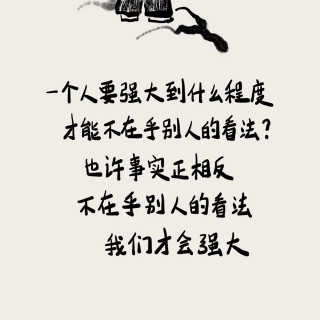 一个人要强大到什么程度
才能不在乎别人的看法?
也许事实正相反
不在乎别人的看法
我们才会强大